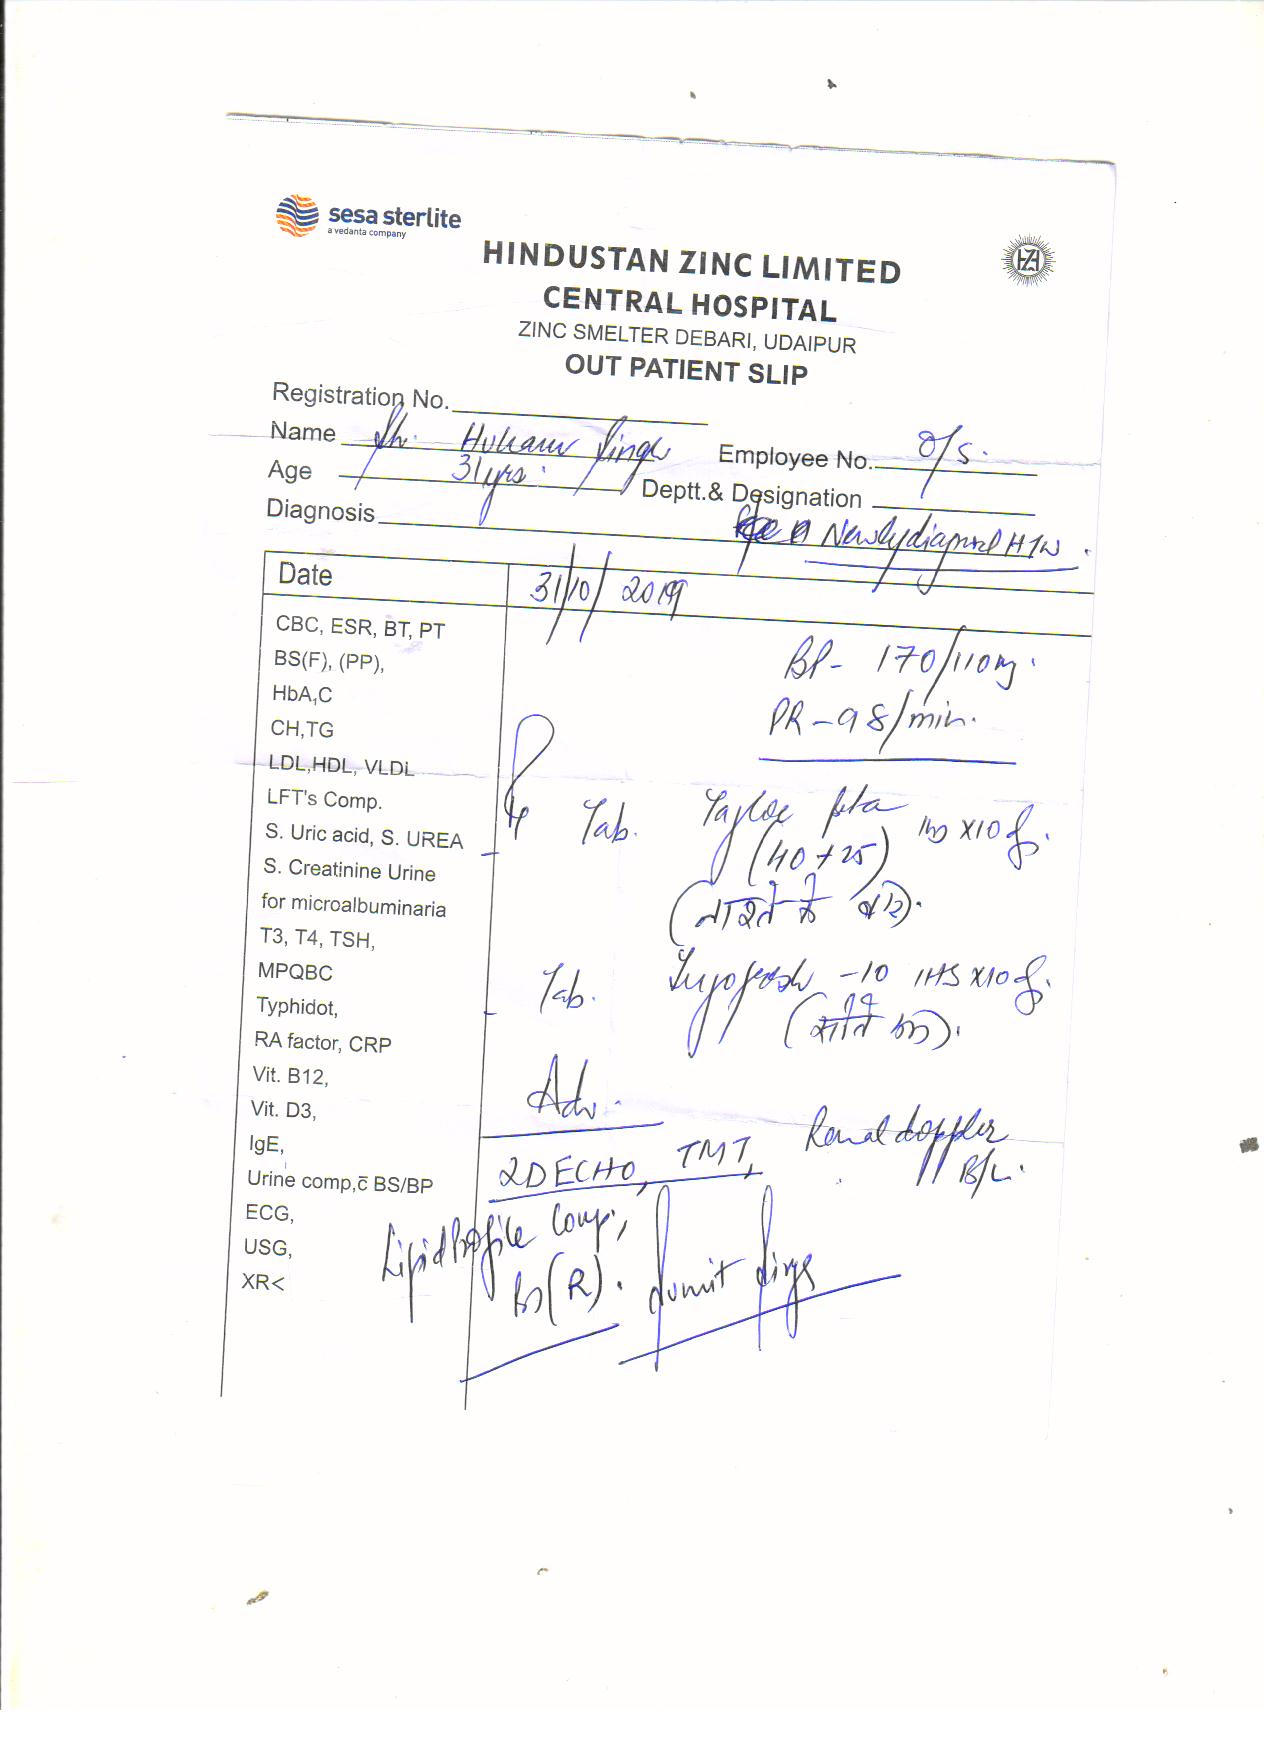 sesa sterlite
a vedanta company
HINDUSTAN ZINC LIMITED
CENTRAL HOSPITAL
ZINC SMELTER DEBARI, UDAIPUR
OUT PATIENT SLIP
Registration No.
Name Sh. Hukam Singh Employee No. O/S.
Age 31 yrs. Deptt.& Designation
Diagnosis Newly diagnosed HTN
Date 31/10/2019
CBC, ESR, BT, PT
BS(F), (PP),
HbA1C
CH,TG
LDL,HDL, VLDL
LFT's Comp.
S. Uric acid, S. UREA
S. Creatinine Urine
for microalbuminaria
T3, T4, TSH,
MPQBC
Typhidot,
RA factor, CRP
Vit. B12,
Vit. D3,
IgE,
Urine comp,c̄ BS/BP
ECG,
USG,
XR<
BP- 170/110
PR-98/min.
Tab. beta x10
(40+25)
Tab. -10 1HS x10
Adv.
2D ECHO, TMT, Renal doppler
B/L.
Lipid profile Comp.,
BS(R). Sumit Singh